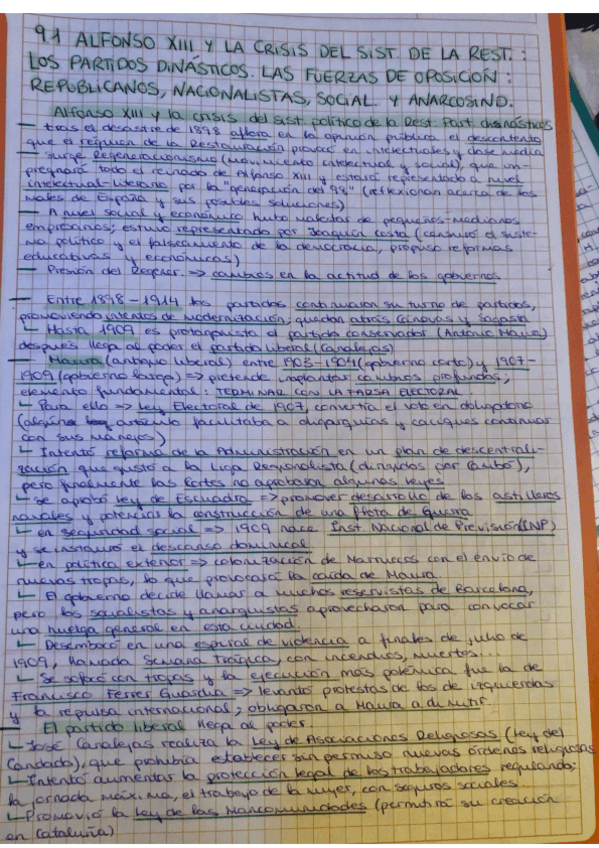 9.1 ALFONSO XIII Y LA CRISIS DEL SIST. DE LA REST.:
LOS PARTIDOS DINÁSTICOS. LAS FUERZAS DE OPOSICIÓN:
REPUBLICANOS, NACIONALISTAS, SOCIAL. Y ANARCOSIND.
Alfonso XIII y la crisis del sist. político de la Rest. Part. dinásticos
— tras el desastre de 1898 aflora en la opinión pública el descontento
que el régimen de la Restauración provocó en intelectuales y clase media
— Surge Regeneracionismo (movimiento intelectual y social), que im-
pregnará todo el reinado de Alfonso XIII y estará representado a nivel
intelectual-literario por la "generación del 98" (reflexionan acerca de los
males de España y sus posibles soluciones)
— A nivel social y económico hubo malestar de pequeños-medianos
empresarios; estuvo representado por Joaquín Costa (censuró el siste-
ma político y el falseamiento de la democracia, propuso reformas
educativas y económicas)
— Presión del Regener. => cambios en la actitud de los gobiernos
— Entre 1898-1914 los partidos continuaron su turno de partidos,
promoviendo intentos de modernización, quedan atrás Cánovas y Sagasta
└ Hasta 1909 es protagonista el partido conservador (Antonio Maura)
después llega al poder el partido liberal (Canalejas)
— Maura (antiguo liberal) entre 1903-1904 (gobierno corto) y 1907-
1909 (gobierno largo) => pretende implantar cambios profundos;
elemento fundamental: TERMINAR CON LA FARSA ELECTORAL
└ Para ello => Ley Electoral de 1907, convertía el voto en obligatorio
(algún artículo facilitaba a oligarquías y caciques continuar
con sus manejos)
└ Intentó reforma de la Administración en un plan de descentrali-
zación que gustó a la Liga Regionalista (dirigidos por Cambó),
pero finalmente las Cortes no aprobaron algunas leyes
└ se aprobó Ley de Escuadra => promover desarrollo de los astilleros
navales y potenciar la construcción de una flota de guerra
└ en seguridad social => 1909 nace Inst. Nacional de Previsión (INP)
y se instauró el descanso dominical
└ en política exterior => colonización de Marruecos con el envío de
nuevas tropas, lo que provocará la caída de Maura
└ El gobierno decide llamar a muchos reservistas de Barcelona,
pero los socialistas y anarquistas aprovecharon para convocar
una huelga general en esta ciudad
└ Desembocó en una espiral de violencia a finales de julio de
1909, llamada Semana Trágica, con incendios, muertos...
└ Se sofocó con tropas y la ejecución más polémica fue la de
Francisco Ferrer Guardia => levantó protestas de los de izquierdas
y la repulsa internacional; obligaron a Maura a dimitir
— El partido liberal llega al poder.
└ José Canalejas realiza la Ley de Asociaciones Religiosas (Ley del
Candado), que prohibía establecer sin permiso nuevas órdenes religiosas
└ Intentó aumentar la protección legal de los trabajadores regulando:
la jornada máxima, el trabajo de la mujer, con seguros sociales
└ Promovió la Ley de las Mancomunidades (permitirá su creación
en Cataluña)